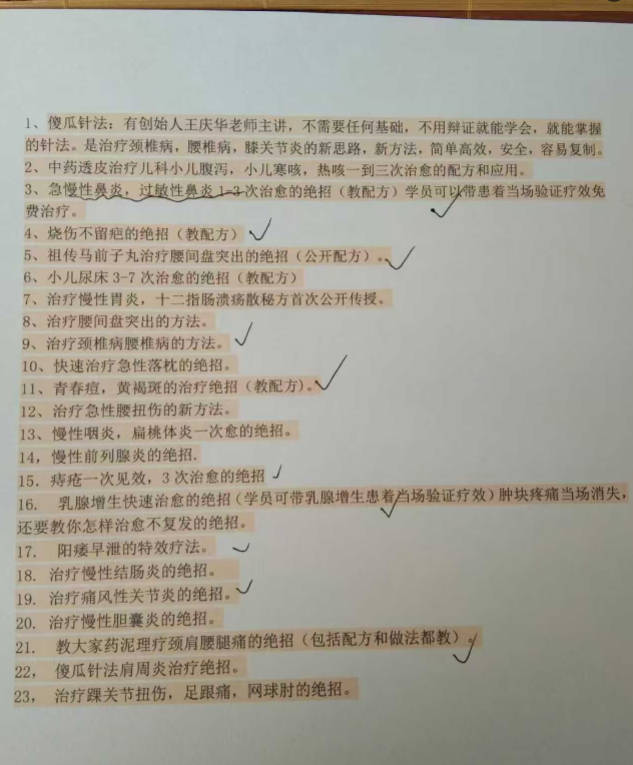 1、傻瓜针法：有创始人王庆华老师主讲，不需要任何基础，不用辩证就能学会，就能掌握
的针法。是治疗颈椎病，腰椎病，膝关节炎的新思路，新方法，简单高效，安全，容易复制。
2、中药透皮治疗儿科小儿腹泻，小儿寒咳，热咳一到三次治愈的配方和应用。
3、急慢性鼻炎，过敏性鼻炎1-3次治愈的绝招（教配方）学员可以带患着当场验证疗效免
费治疗。
4、烧伤不留疤的绝招（教配方）
5、祖传马前子丸治疗腰间盘突出的绝招（公开配方）。
6、小儿尿床3-7次治愈的绝招（教配方）
7、治疗慢性胃炎，十二指肠溃疡散秘方首次公开传授。
8、治疗腰间盘突出的方法。
9、治疗颈椎病腰椎病的方法。
10、快速治疗急性落枕的绝招。
11、青春痘，黄褐斑的治疗绝招（教配方）。
12、治疗急性腰扭伤的新方法。
13、慢性咽炎，扁桃体炎一次愈的绝招。
14，慢性前列腺炎的绝招.
15. 痔疮一次见效，3次治愈的绝招
16. 乳腺增生快速治愈的绝招（学员可带乳腺增生患着当场验证疗效）肿块疼痛当场消失，
还要教你怎样治愈不复发的绝招。
17. 阳痿早泄的特效疗法。
18. 治疗慢性结肠炎的绝招。
19. 治疗痛风性关节炎的绝招。
20. 治疗慢性胆囊炎的绝招。
21. 教大家药泥理疗颈肩腰腿痛的绝招（包括配方和做法都教）。
22， 傻瓜针法肩周炎治疗绝招。
23， 治疗踝关节扭伤，足跟痛，网球肘的绝招。